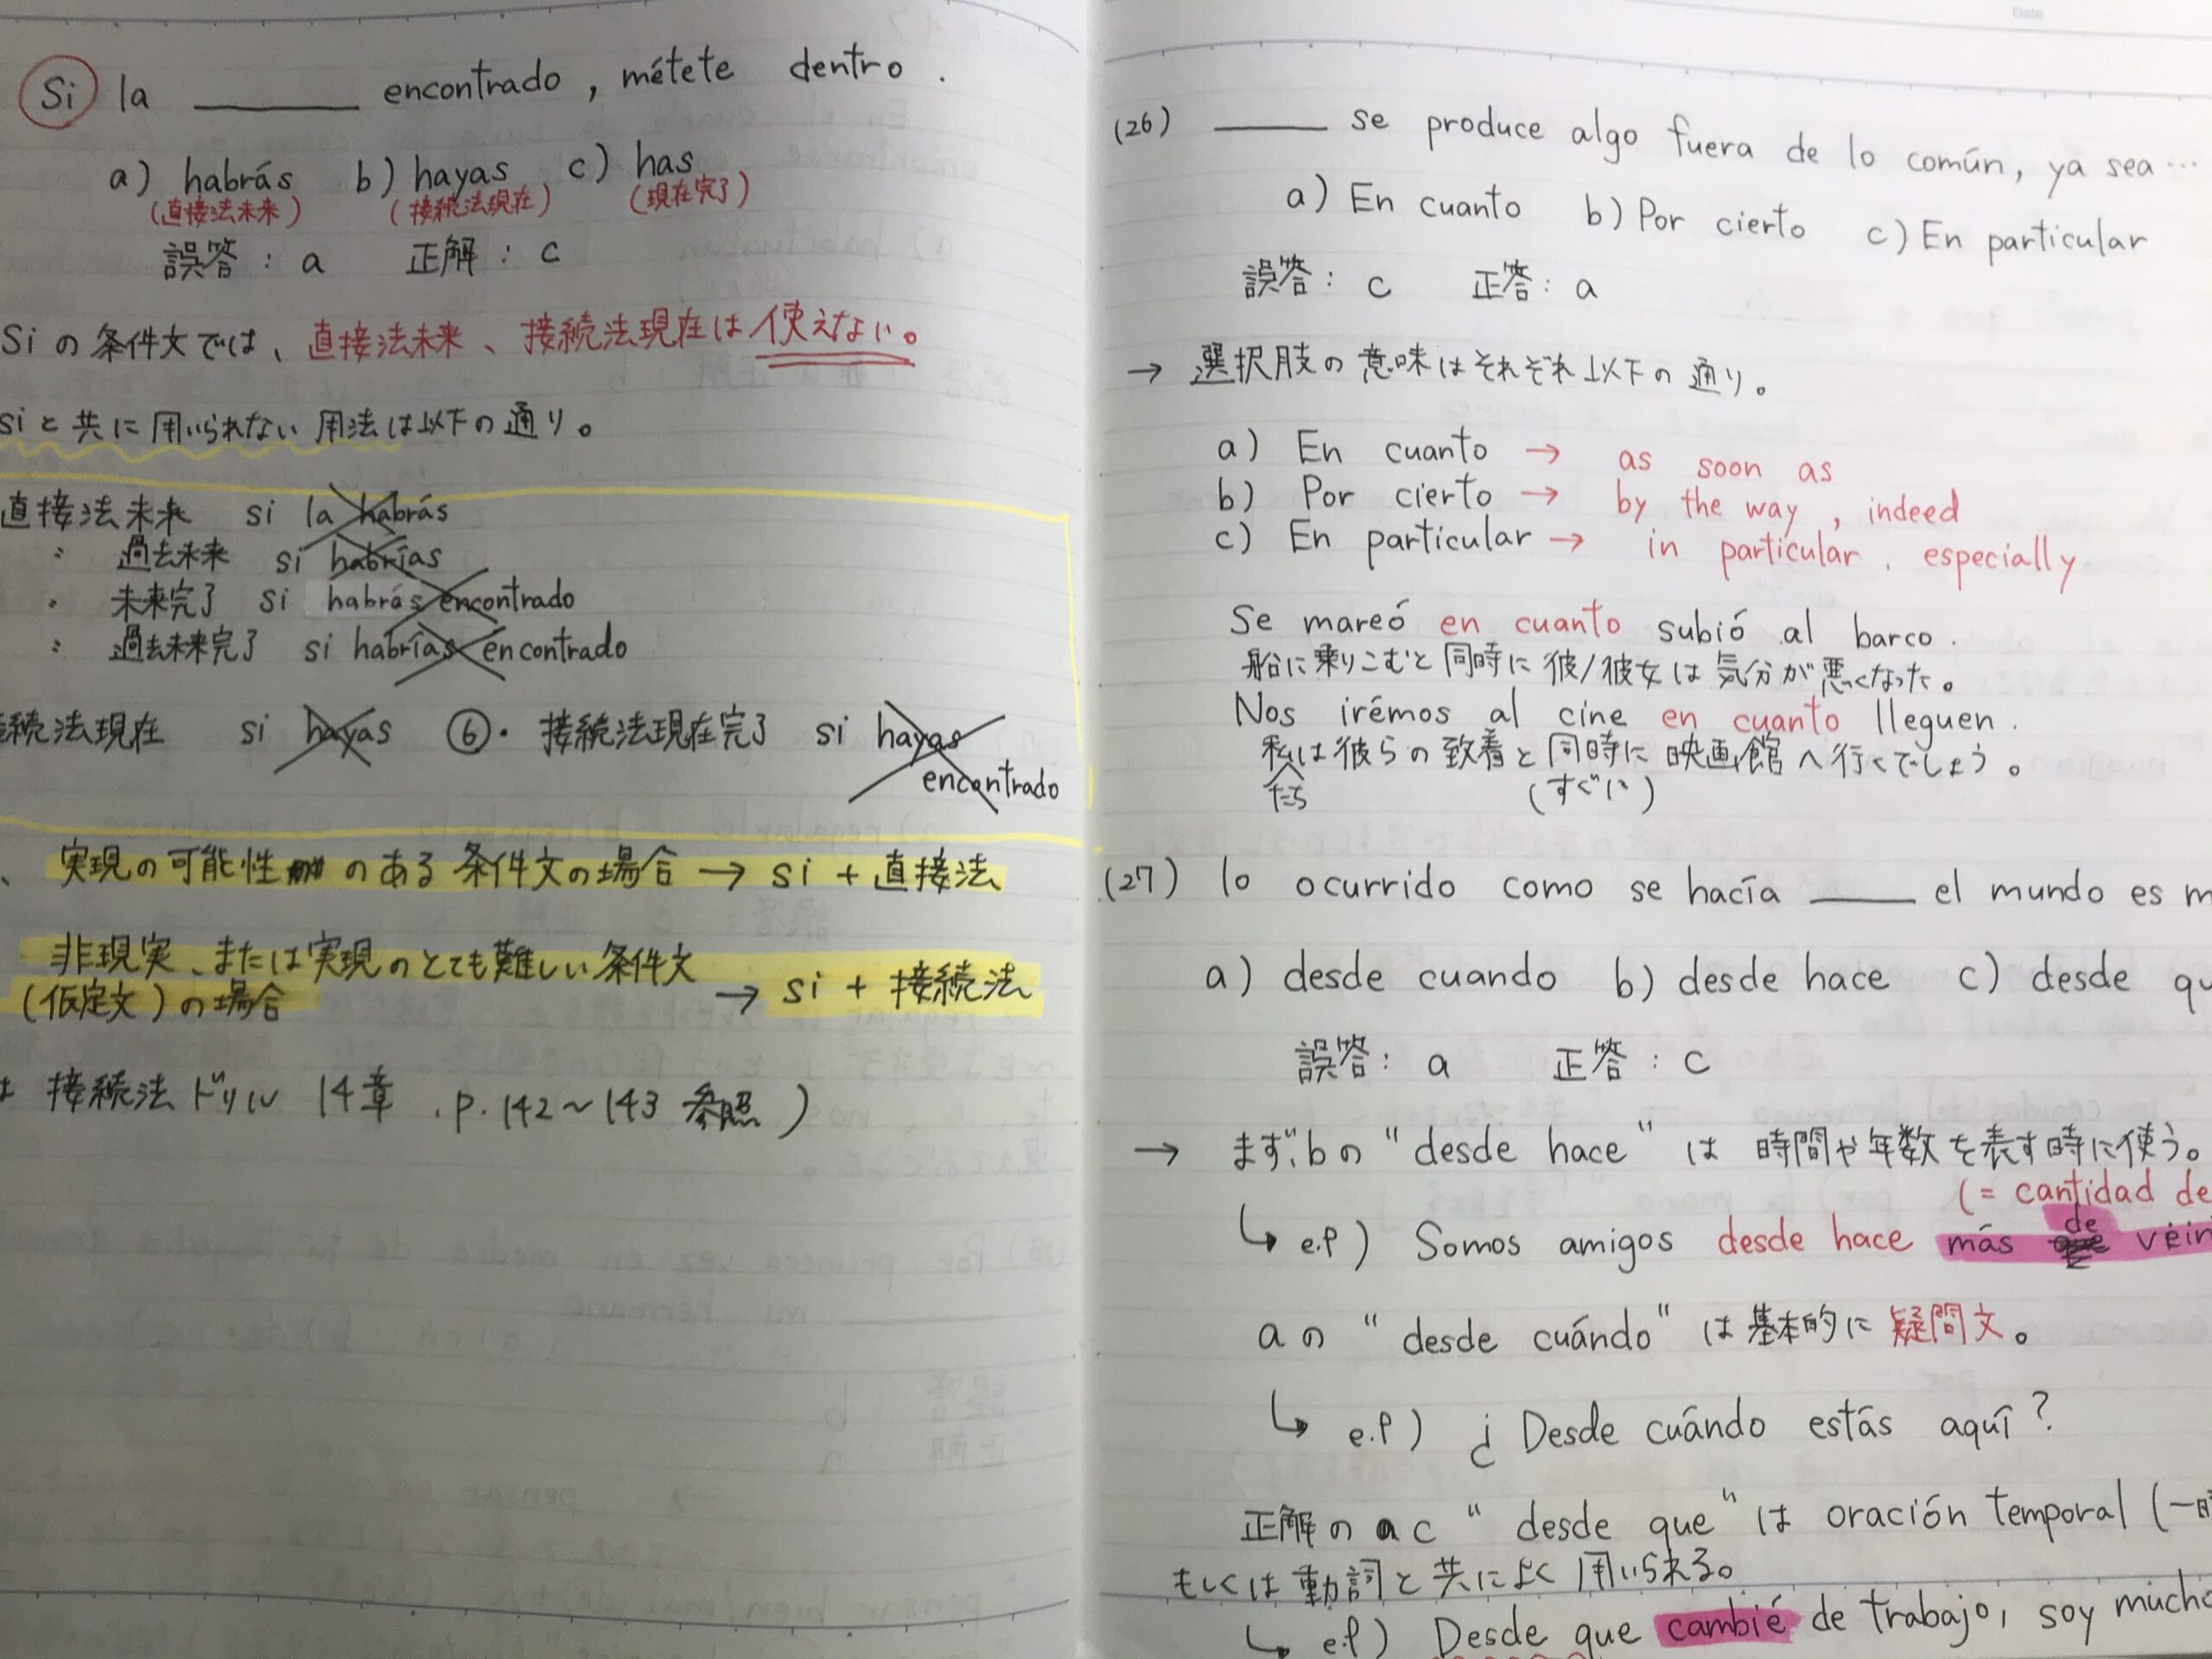 Si la ______ encontrado, métete dentro.
a) habrás b) hayas c) has
(直接法未来) (接続法現在) (現在完了)
誤答: a 正解: c
Siの条件文では、直接法未来、接続法現在は使えない。
siと共に用いられない用法は以下の通り。
直接法未来 si la habrás
〃 過去未来 si habrías
〃 未来完了 si habrás encontrado
〃 過去未来完了 si habrías encontrado
続法現在 si hayas ⑥・接続法現在完了 si hayas
encontrado
、実現の可能性のある条件文の場合 → si + 直接法
非現実、または実現のとても難しい条件文
(仮定文)の場合 → si + 接続法
接続法ドリル 14章.p.142~143 参照)
Date
(26) ______ se produce algo fuera de lo común, ya sea…
a) En cuanto b) Por cierto c) En particular
誤答: c 正答: a
→ 選択肢の意味はそれぞれ以下の通り。
a) En cuanto → as soon as
b) Por cierto → by the way, indeed
c) En particular → in particular. especially
Se mareó en cuanto subió al barco.
船に乗りこむと同時に彼/彼女は気分が悪くなった。
Nos irémos al cine en cuanto lleguen.
私は彼らの致着と同時に映画館へ行くでしょう。
たち (すぐに)
(27) lo ocurrido como se hacía ______ el mundo es m
a) desde cuando b) desde hace c) desde qu
誤答: a 正答: c
→ まず、bの "desde hace" は 時間や年数を表す時に使う。
(= cantidad de
de
↳ e.p) Somos amigos desde hace más que vein
aの "desde cuándo" は基本的に疑問文。
↳ e.p) ¿Desde cuándo estás aquí?
正解の c "desde que" は oración temporal (一時
もしくは動詞と共によく用いられる。
↳ e.p) Desde que cambié de trabajo, soy mucho